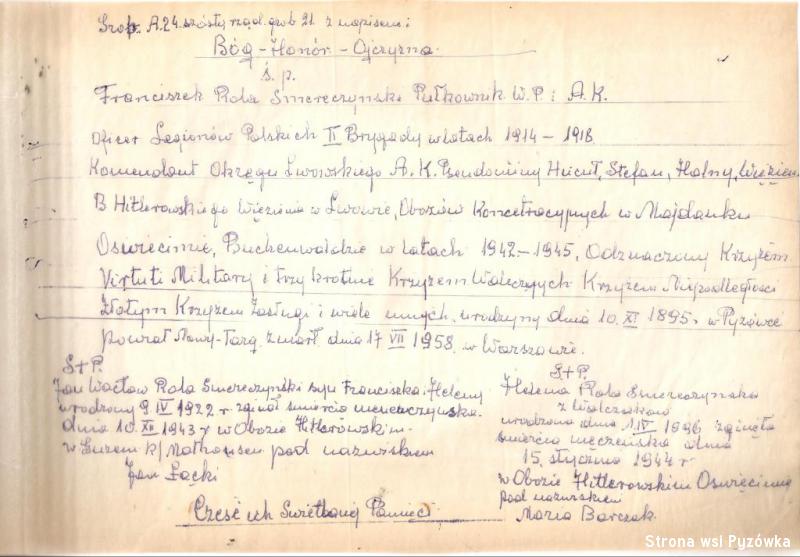 A.24. szósty rząd. grob 21. z napisem:
Bóg - Honór - Ojczyzna.
ś. p.
Franciszek Rola Smereczynski Pułkownik W.P. i A.K.
Oficer Legionów Polskich II Brygady w latach 1914 - 1918
Komendant Okręgu Lwowskiego A.K. Pseudonimy Hucuł, Stefan, Halny, Więzien.
B Hitlerowskiego Więzienia w Lwowie, Obozów Koncetracyjnych w Majdanku
Oswięcimie, Buchenwaldzie w latach 1942-1945, Odznaczony Krzyżem
Virtuti Military i trzykrotnie Krzyżem Walecznych Krzyżem Niepodległosci
Złotym Krzyżem Zasługi i wiele innych. urodzony dnia 10. XI 1895 r. w Pyzówce
powiat Nowy-Targ. zmarł. dnia 17 VII 1958. w Warszawie.
S+P.
Jan Wacław Rola Smereczynski syn Franciszka i Heleny
urodzony 9. IV 1922 r zginął smiercią
dnia 10 XII 1943 r w Obozie Hitlerówskim-
w Guzem k/ Mathausen pod nazwiskiem
Jan Łącki
S+P.
Helena Rola Smereczynska
z Walczaków
urodzona dnia IV zginęła
smiercia męczeńska dnia
15. stycznia 1944 r
w Obozie Hitlerowskim Oswięcimiu
pod nazwiskiem
Maria Barczak.
Cześć ich Swietlanej Pamięci
Strona wsi Pyzówka